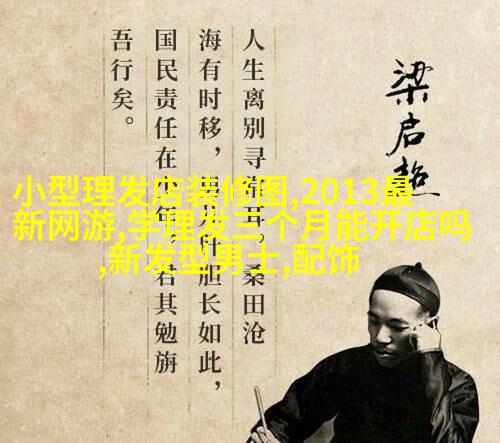 人生离别寻常耳，桑田沧
海有时移，男儿肝胆长如此，
国民责任在少年，君其勉旃
吾行矣。
梁启超
小型理发店装修图,2013最
新网游,学理发三个月能开店吗
,新发型男士,配饰